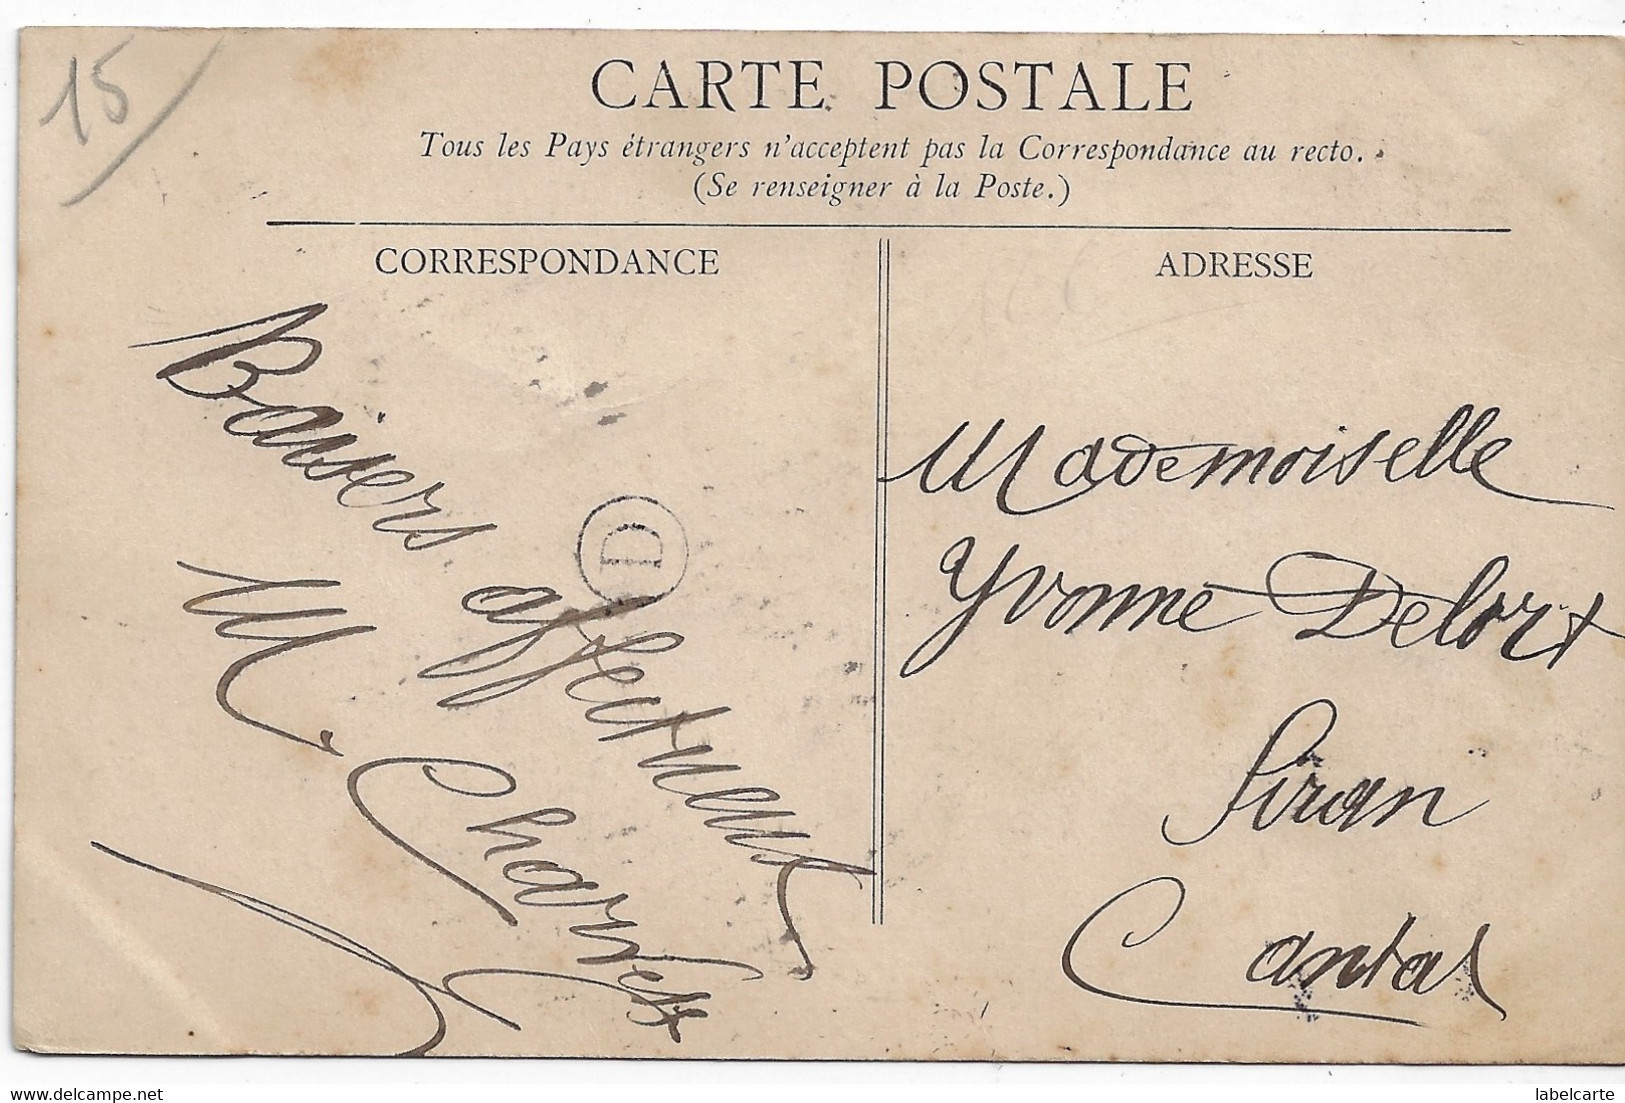 15
CARTE POSTALE
Tous les Pays étrangers n'acceptent pas la Correspondance au recto.
(Se renseigner à la Poste.)
CORRESPONDANCE
Baisers affectueux
M. Charvet
D
ADRESSE
Mademoiselle
Yvonne Delort
Siran
Cantal
delcampe.net
labelcarte